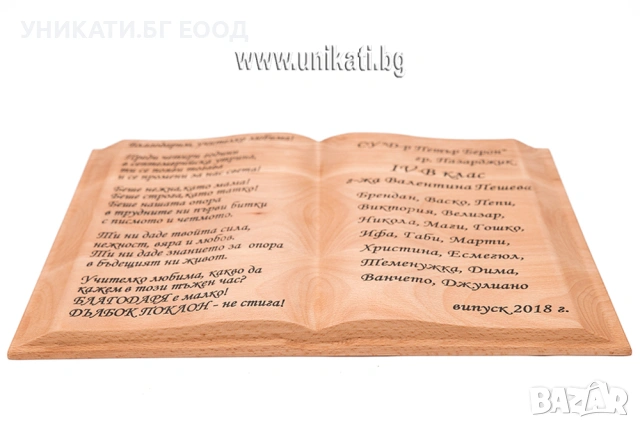 УНИКАТИ.БГ ЕООД
www.unikati.bg
Благодарим, учителко любима!
Преди четири години
в септемврийска утрин,
ти се появи тогава
и се промени за нас света!
Беше нежна, като мама!
Беше строга, като татко!
Беше нашата опора
в трудните ни първи битки
с писмото и четмото.
Ти ни даде твойта сила,
нежност, вяра и любов.
Ти ни даде знанието за опора
в бъдещият ни живот.
Учителко любима, какво да
кажем в този тъжен час?
БЛАГОДАРЯ е малко!
ДЪЛБОК ПОКЛОН - не стига!
СУ "Д-р Петър Берон"
гр. Пазарджик
IV В клас
г-жа Валентина Пешева
Брендан, Васко, Пепи,
Виктория, Велизар,
Никола, Маги, Гошко,
Ифа, Габи, Марти,
Христина, Есмегюл,
Теменужка, Дима,
Ванчето, Джулиано
випуск 2018 г.
BAZAR